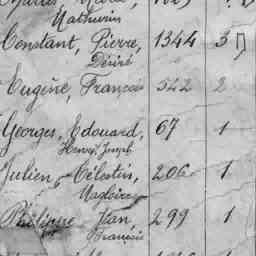 Mathurin
Constant, Pierre, 1344 3
Désiré
Eugène, François 542 2
Georges, Edouard, 67 1
Henri, Joseph
Julien, Célestin, 206 1
Magloire
Philippe, Jean, 299 1
François